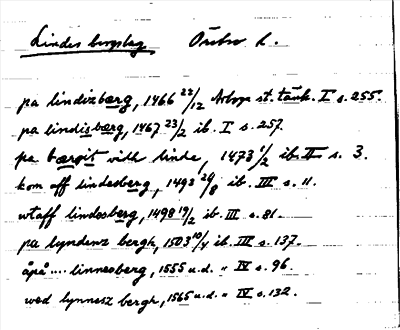 Lindes bergslag Örebro l.
pa lindizbærg, 1466 22/12 Arboga st. tänk. I s. 255.
pa lindisbærg, 1467 23/2 ib. I s. 257.
pa bærgit widh linde, 1473 1/2 ib. II s. 3.
kom aff lindesberg, 1493 26/8 ib. III s. 11.
wtaff lindesberg, 1498 19/2 ib. III s. 81.
pa lyndenz bergh, 1503 10/4 ib. III s. 137.
åpå .... linnesberg, 1555 u.d. " IV s. 96.
wed lynnesz bergh, 1565 u.d. " IV s. 132.